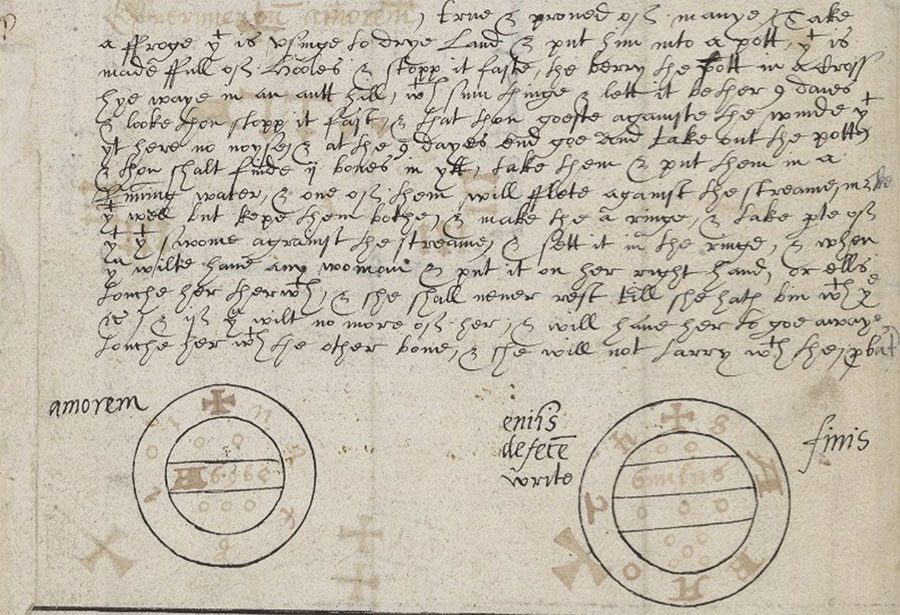 Experimentū amorem, true & proued of manye, Take
a ffroge yt is vsinge to drye Land & put him into a pott, yt is
made ffull of hooles & stopp it faste, the berry the pott in a Cross
hye waye in an antt hill, wth sum thinge & lett it be ther 9 daies
& looke thou stopp it fast, & that thou goeste againste the winde yt
yu here no noyse, & at the 9 dayes end goe and take out the pott
& thou shalt finde ij bones in ytt, take them & put them in a
Runing water, & one of them will fflete against the streame,
yt well but kepe them bothe, & make the a ringe, & take pte of
yt yt swome against the streame, & sett it in the ringe, & when
yu wilte haue any woman & put it on her right hand, or ells
touche her therwth, & she shall neuer rest till she hath bin wth ye
& if yu wilt no more of her, & will haue her to goe awaye
touche her wth the other bone, & she will not tarry wth the, pbat
amorem
defete
write
finis